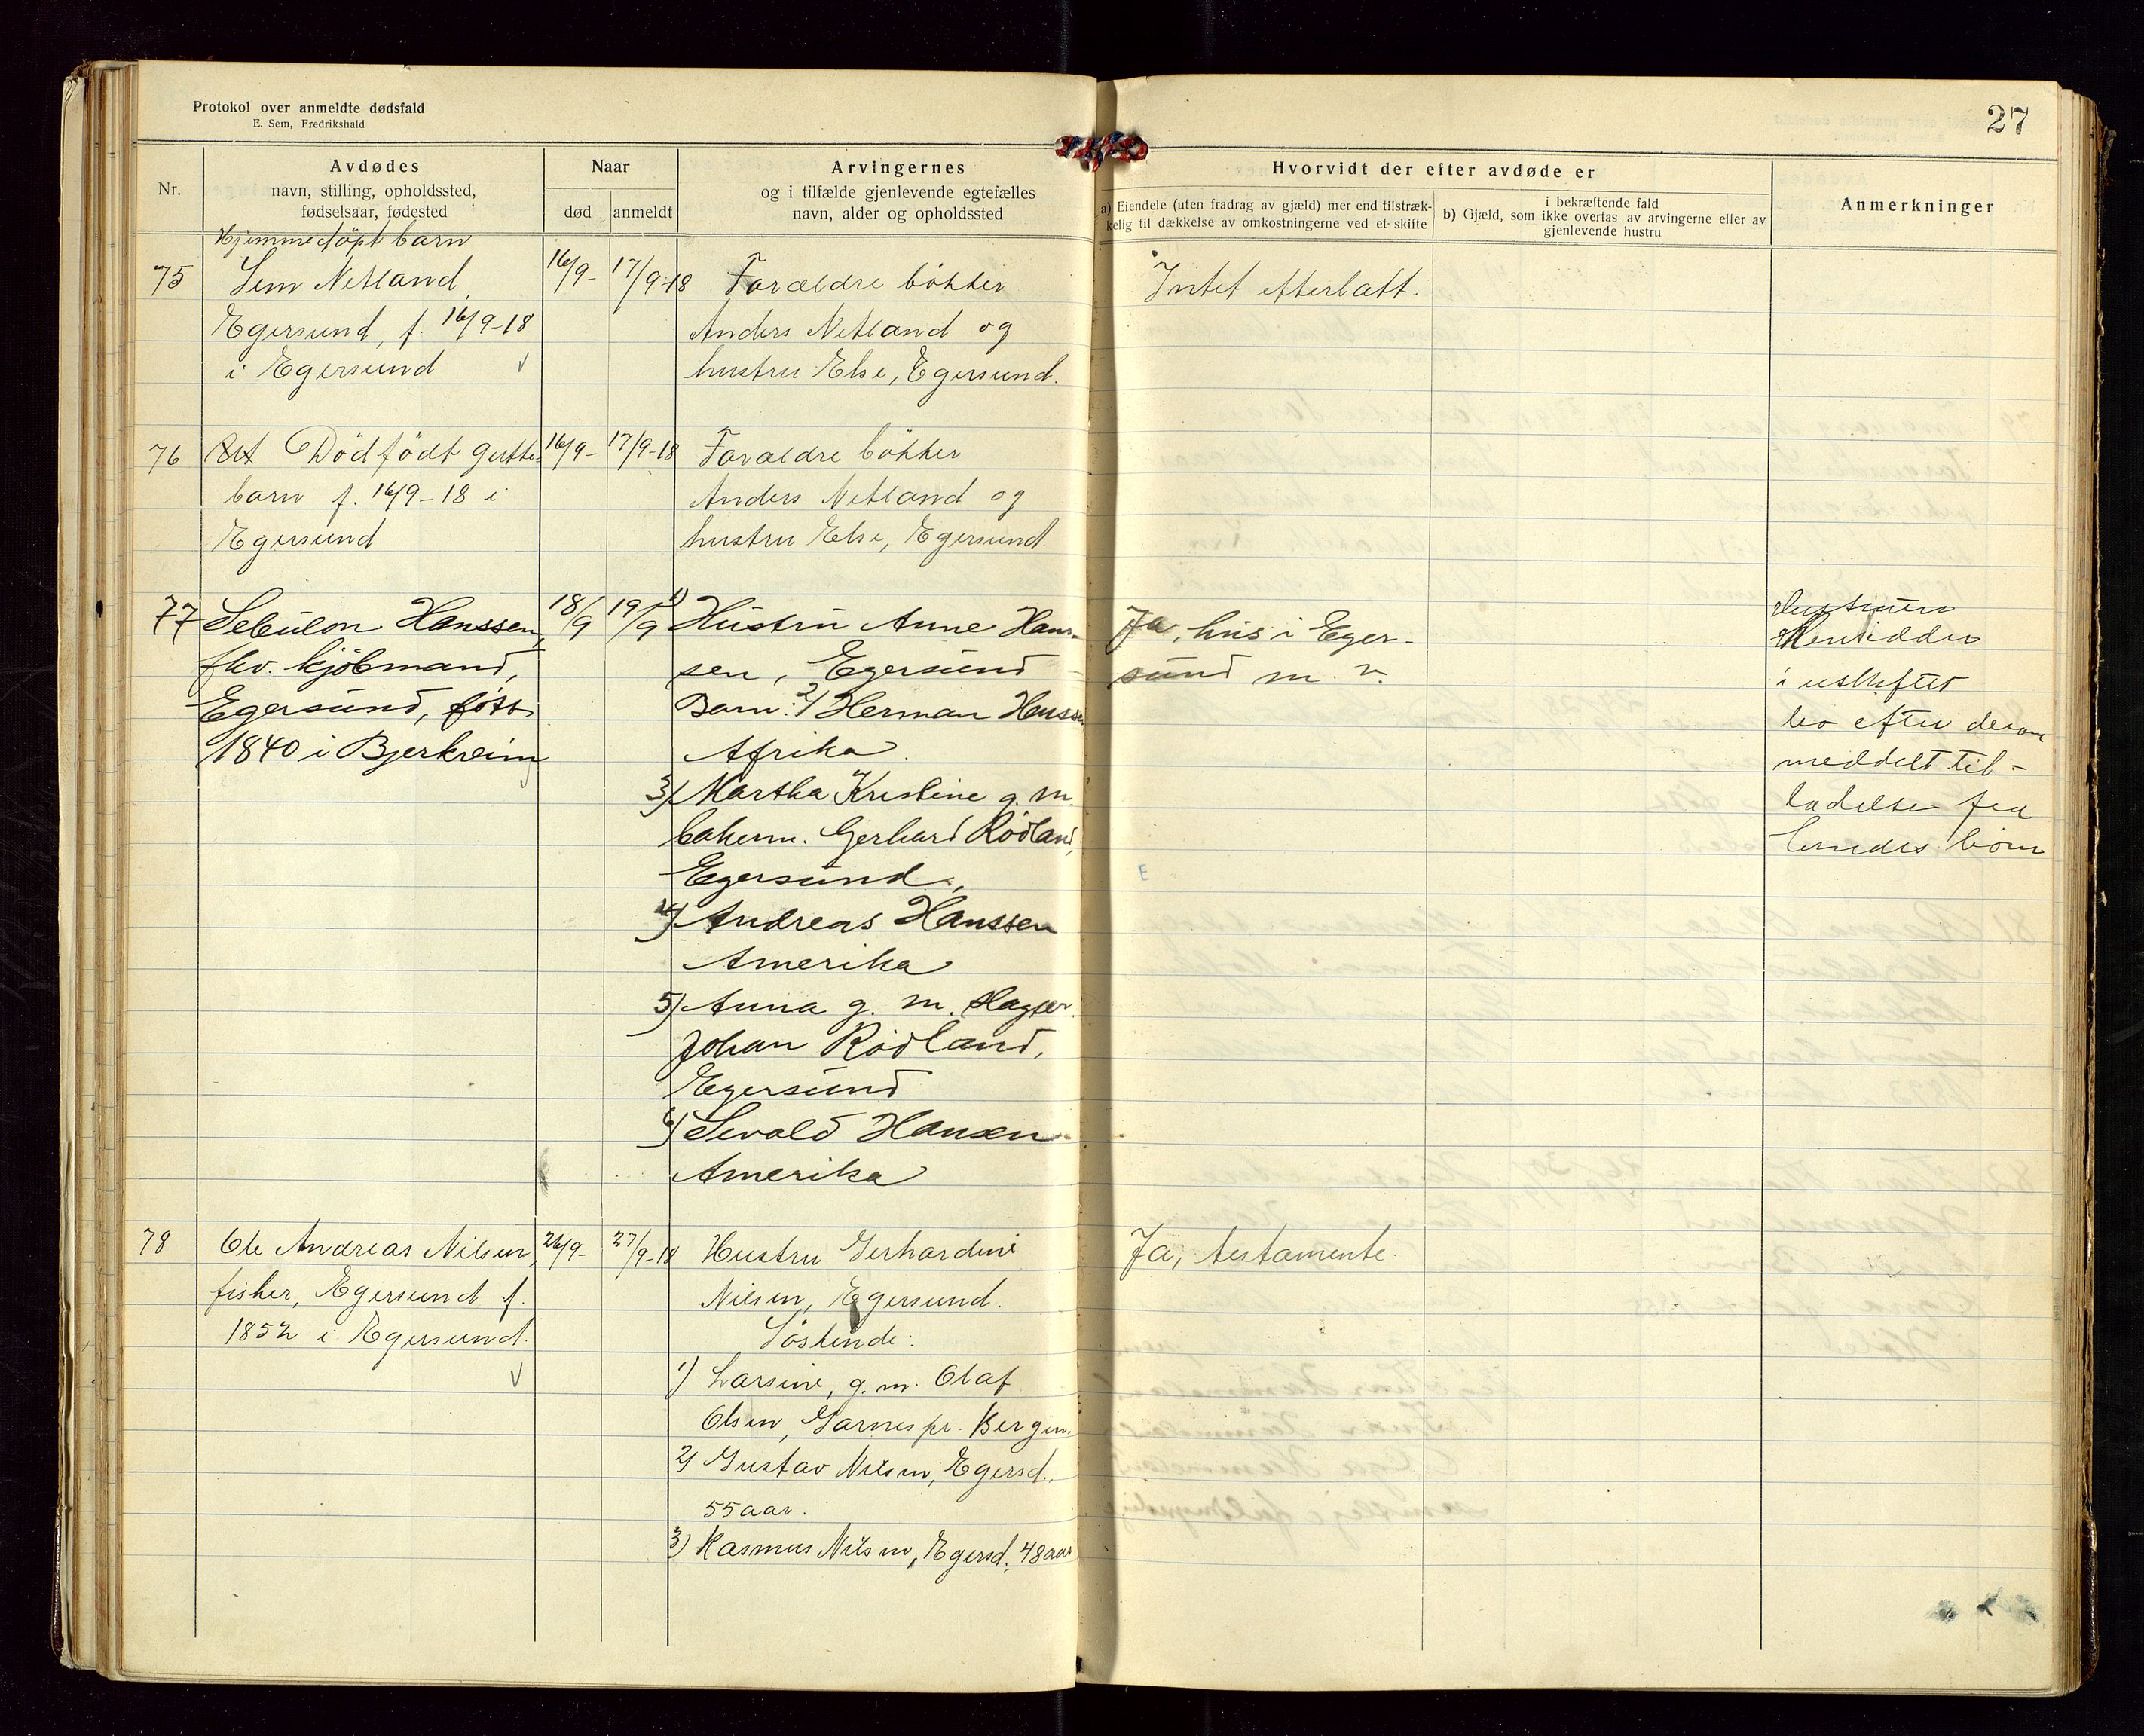 Protokol over anmeldte dødsfald
E. Sem, Fredrikshald
27
Nr.
Avdødes
navn, stilling, opholdssted,
fødselsaar, fødested
Naar
død
anmeldt
Arvingernes
og i tilfælde gjenlevende egtefælles
navn, alder og opholdssted
Hvorvidt der efter avdøde er
a) Eiendele (uten fradrag av gjæld) mer end tilstræk-
kelig til dækkelse av omkostningerne ved et skifte
i bekræftende fald
b) Gjæld, som ikke overtas av arvingerne eller av
gjenlevende hustru
Anmerkninger
Hjemmedöpt barn
75
Sem Netland,
Egersund, f. 16/9-18
i Egersund
16/9-
17/9-18
Forældre bökker
Anders Netland og
hustru Else, Egersund.
Intet efterlatt.
76
Dödfödt gutte-
barn f. 16/9-18 i
Egersund
16/9-
17/9-18
Forældre bökker
Anders Netland og
hustru Else, Egersund
77
Sebulon Hanssen,
fhv. kjöbmand,
Egersund, født
1840 i Bjerkreim
18/9
19/9
1) Hustru Anne Hans-
sen, Egersund
Barn: 2) Herman Hanssen
Afrika.
3) Martha Kristine g. m.
bakerm. Gerhard Rödland,
Egersund,
4) Andreas Hanssen
Amerika
5) Anna g. m.
Johan Rödland,
Egersund
6) Sevald Hansen
Amerika
Ja, hus i Eger-
sund m. v.
Hustruen
hensidder
i uskiftet
bo efter derom
meddelt til-
ladelse fra
hendes börn
78
Ole Andreas Nilsen,
fisker, Egersund f.
1852 i Egersund.
26/9-
27/9-18
Hustru Gerhardine
Nilsen, Egersund.
Söskende:
1) Larsine, g. m. Olaf
Olsen, Garnes pr. Bergen.
2) Gustav Nilsen, Egersd.
55 aar.
3) Rasmus Nilsen, Egersd., 48 aar
Ja, testamente.